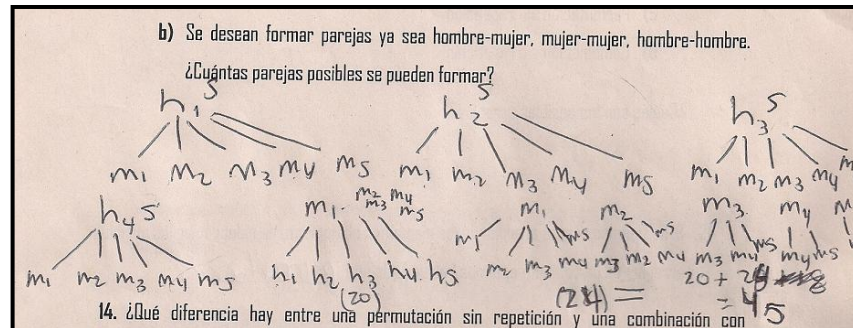 b) Se desean formar parejas ya sea hombre-mujer, mujer-mujer, hombre-hombre.
¿Cuántas parejas posibles se pueden formar?
h1 5 h2 5 h3 5
m1 m2 m3 m4 m5 m1 m2 m3 m4 m5 m1 m2 m3 m4
h4 5 m1 m2 m3 m4 m5 m1 m2 m3 m4
m1 m2 m3 m4 m5 h1 h2 h3 h4 h5 m1 m2 m3 m4 m5 m3 m2 m4 m5 m3 m4 m5 m4 m5
(20) (24) = 20 + 24
= 45
14. ¿Qué diferencia hay entre una permutación sin repetición y una combinación con